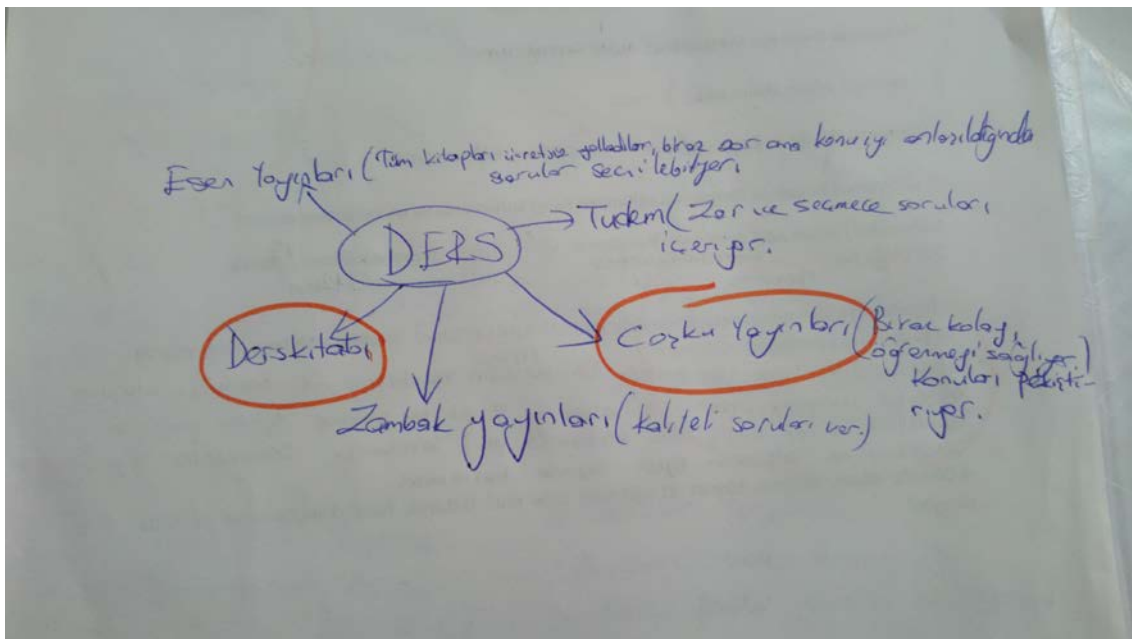 Esen Yayınları (Tüm kitapları ücretsiz yolladılar, biraz zor ama konu iyi anlaşıldığında
sorular seçilebiliyor.
Tudem (Zor ve seçmece soruları
içeriyor.
DERS
Derskitabı
Coşku Yayınları (Biraz kolay,
öğrenmeyi sağlıyor)
konuları pekişti-
riyor.
Zambak yayınları (kaliteli soruları var.)